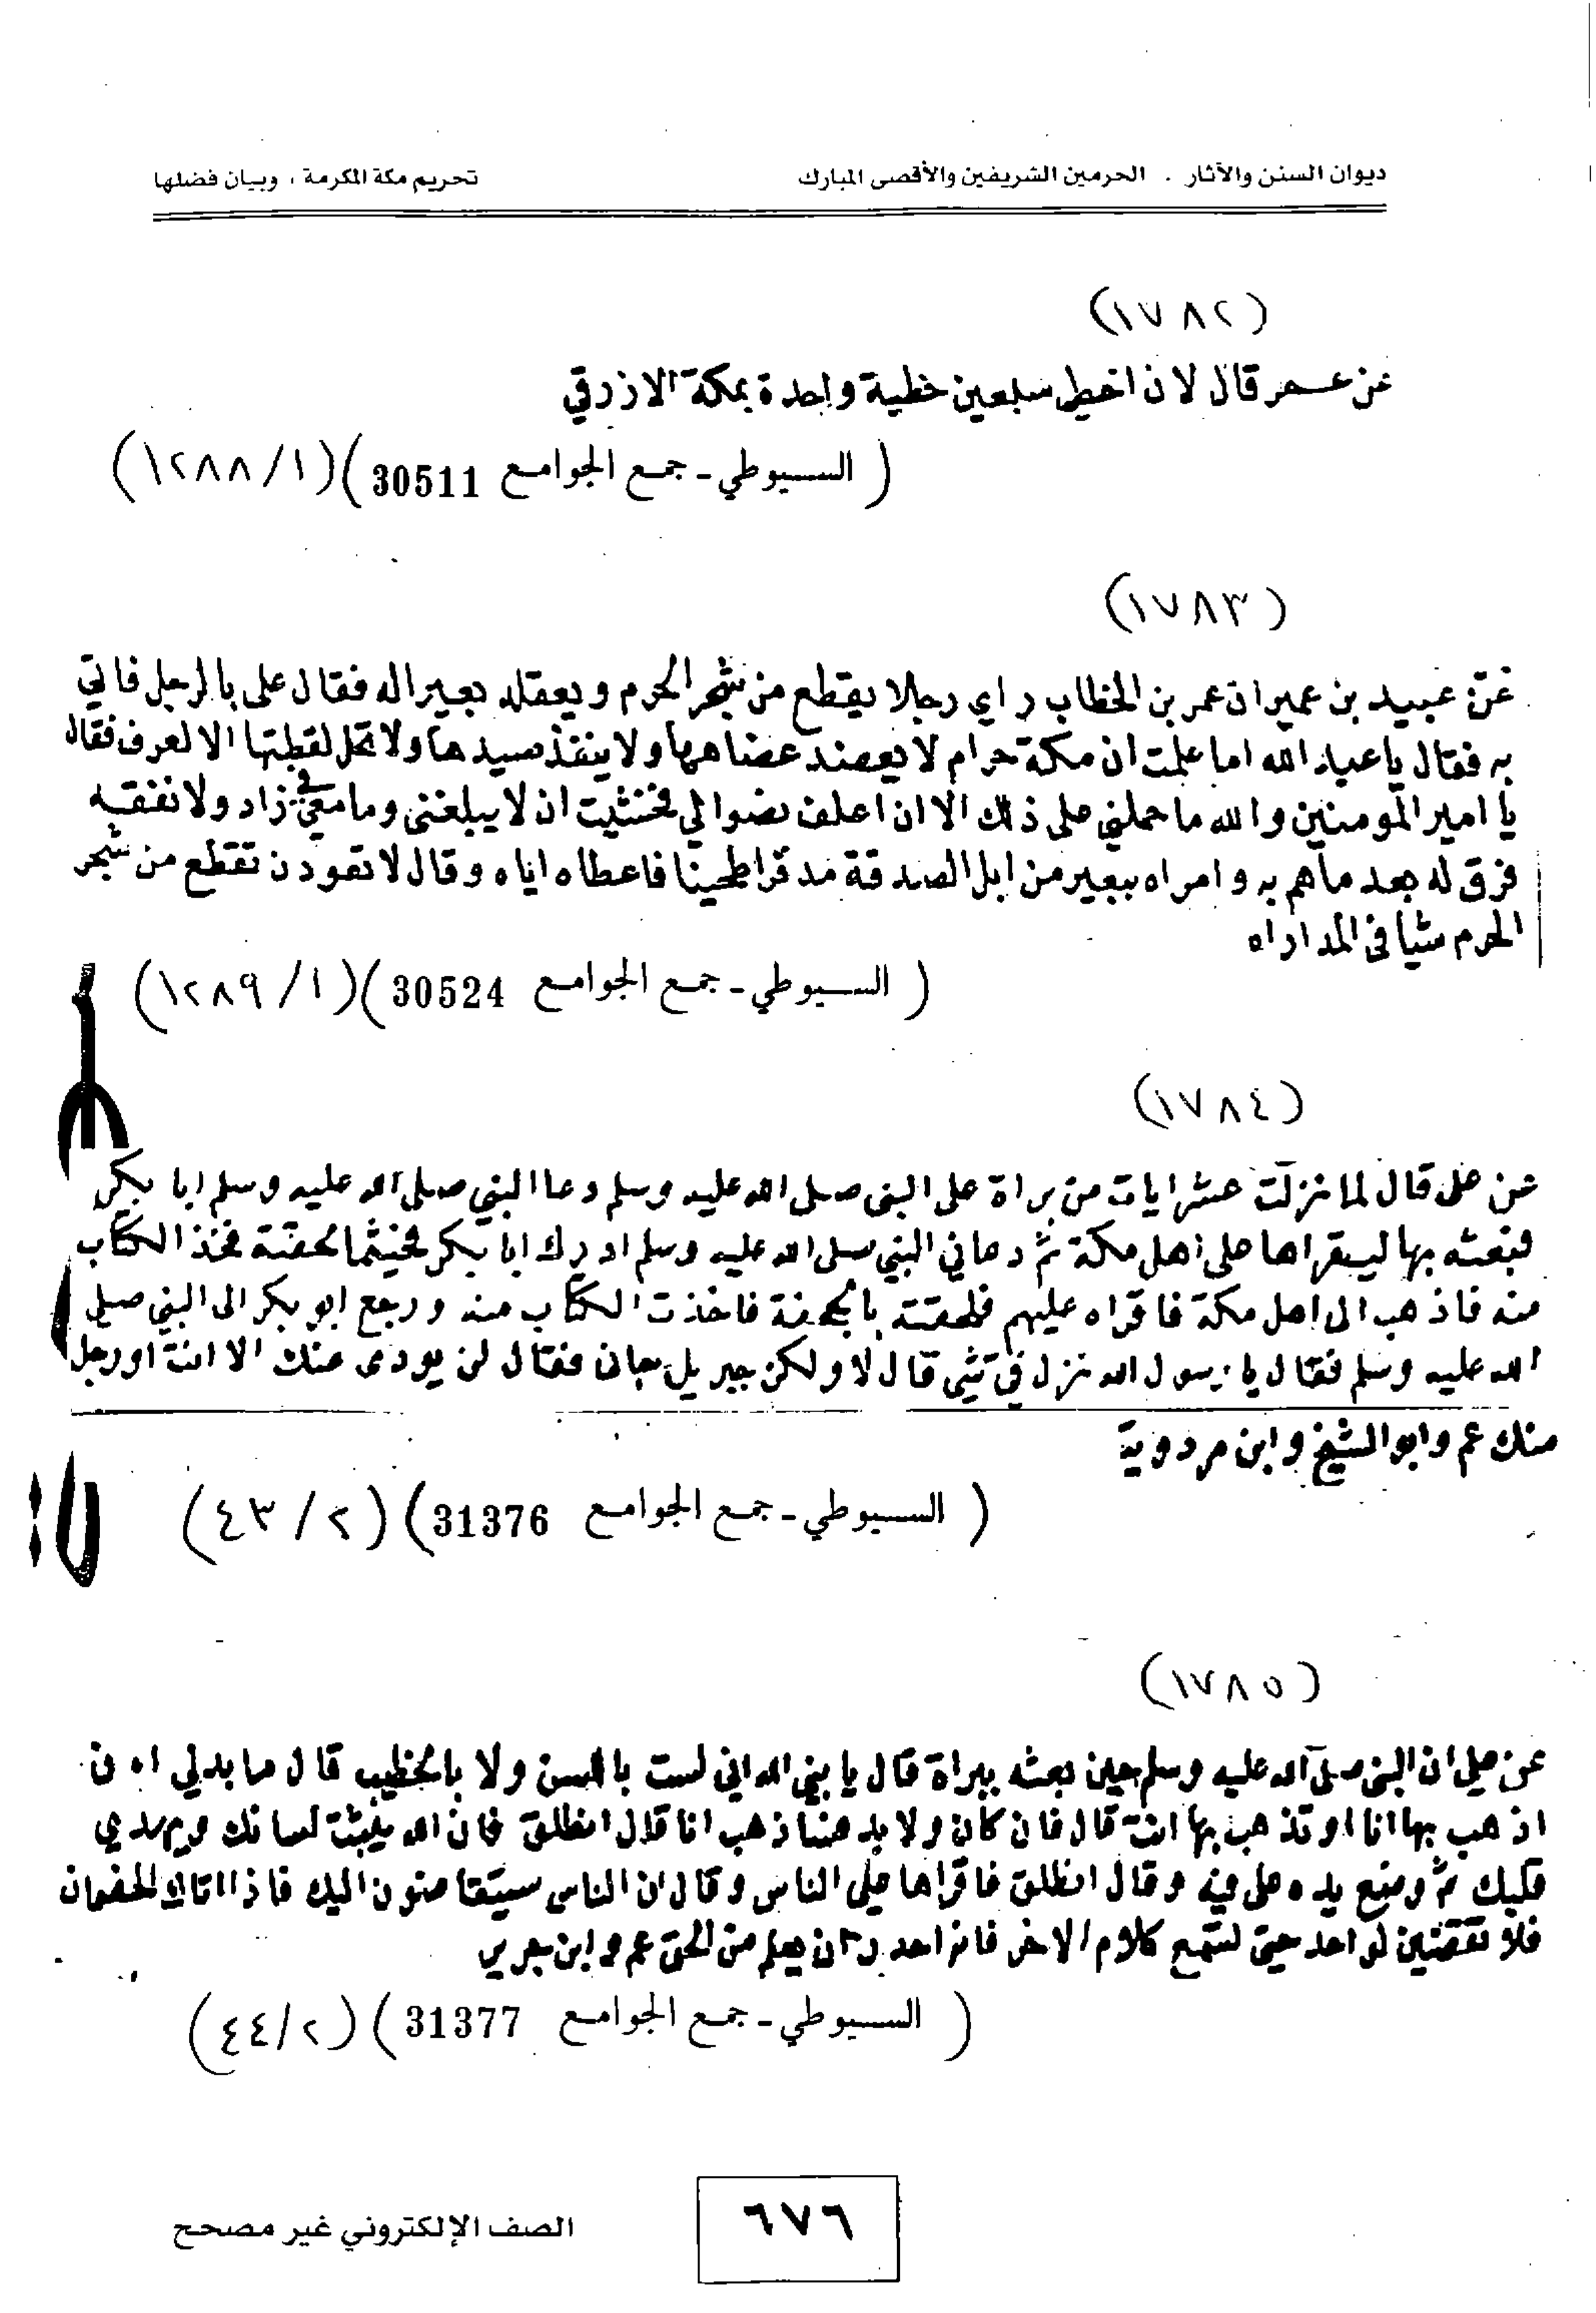 ديوان السنن والآثار . الحرمين الشريفين والأقصى المبارك تحريم مكة المكرمة ، وبيان فضلها
(١٧٨٢)
عن عمر قال لان اخطي سبعين خطية واحدة بمكة الازرقي
( السيوطي - جمع الجوامع 30511 ) (١/ ١٢٨٨)
(١٧٨٣)
عن عبيد بن عمير ان عمر بن الخطاب راي رجلا يقطع من شجر الحرم ويعقله بعيراله فقال على بالرجل فاتي
به فقال يا عبد الله اما علمت ان مكة حرام لا يعضد عضاهها ولا ينفذ صيدها ولا تحل لقطتها الا لعرف فقال
يا امير المومنين والله ما حملني على ذلك الا ان اعلف نضوا لي فخشيت ان لا يبلغنى وما معي زاد ولا نفقه
فرق له بعد ما هم به وامراه ببعير من ابل الصدقة فاعطاه اياه وقال لا تعودن تقطع من شجر
الحرم شيا
( السيوطي - جمع الجوامع 30524 ) (١/ ١٢٨٩)
(١٧٨٤)
عن على قال لما نزلت عشر ايات من براة على النبى صلى الله عليه وسلم دعا النبي صلى الله عليه وسلم ابا بكر
فبعثه بها ليقراها على اهل مكة ثم دعاني النبي صلى الله عليه وسلم ادرك ابا بكر فحيثما لحقته فخذ الكتاب
منه فاذهب الى اهل مكة فاقراه عليهم فلحقته بالجحفة فاخذت الكتاب منه ورجع ابو بكر الى النبي صلى
الله عليه وسلم فقال يا رسول الله نزل في شي قال لا ولكن جبريل جاني فقال لن يودى عنك الا انت او رجل
منك عم وابو الشيخ وابن مردوية
( السيوطي - جمع الجوامع 31376 ) (٢/ ٤٣)
(١٧٨٥)
عن علي ان النبى صلى الله عليه وسلم حين بعثه ببراة قال يا نبي الله اني لست باللسن ولا بالخطيب قال ما بد لي ان
اذهب بها انا او تذهب بها انت قال فان كان ولا بد فساذهب انا قال انطلق فان الله يثبت لسانك ويهدي
قلبك ثم وضع يده على فيه وقال انطلق فاقراها على الناس وقال ان الناس سيتقاضون اليك فاذا اتاك الخصمان
فلا تقضين لواحد حتى تسمع كلام الاخر فانه اجدر ان يعلم من الحق عم وابن جرير
( السيوطي - جمع الجوامع 31377 ) (٢/ ٤٤)
٦٧٦
الصف الإلكتروني غير مصحح